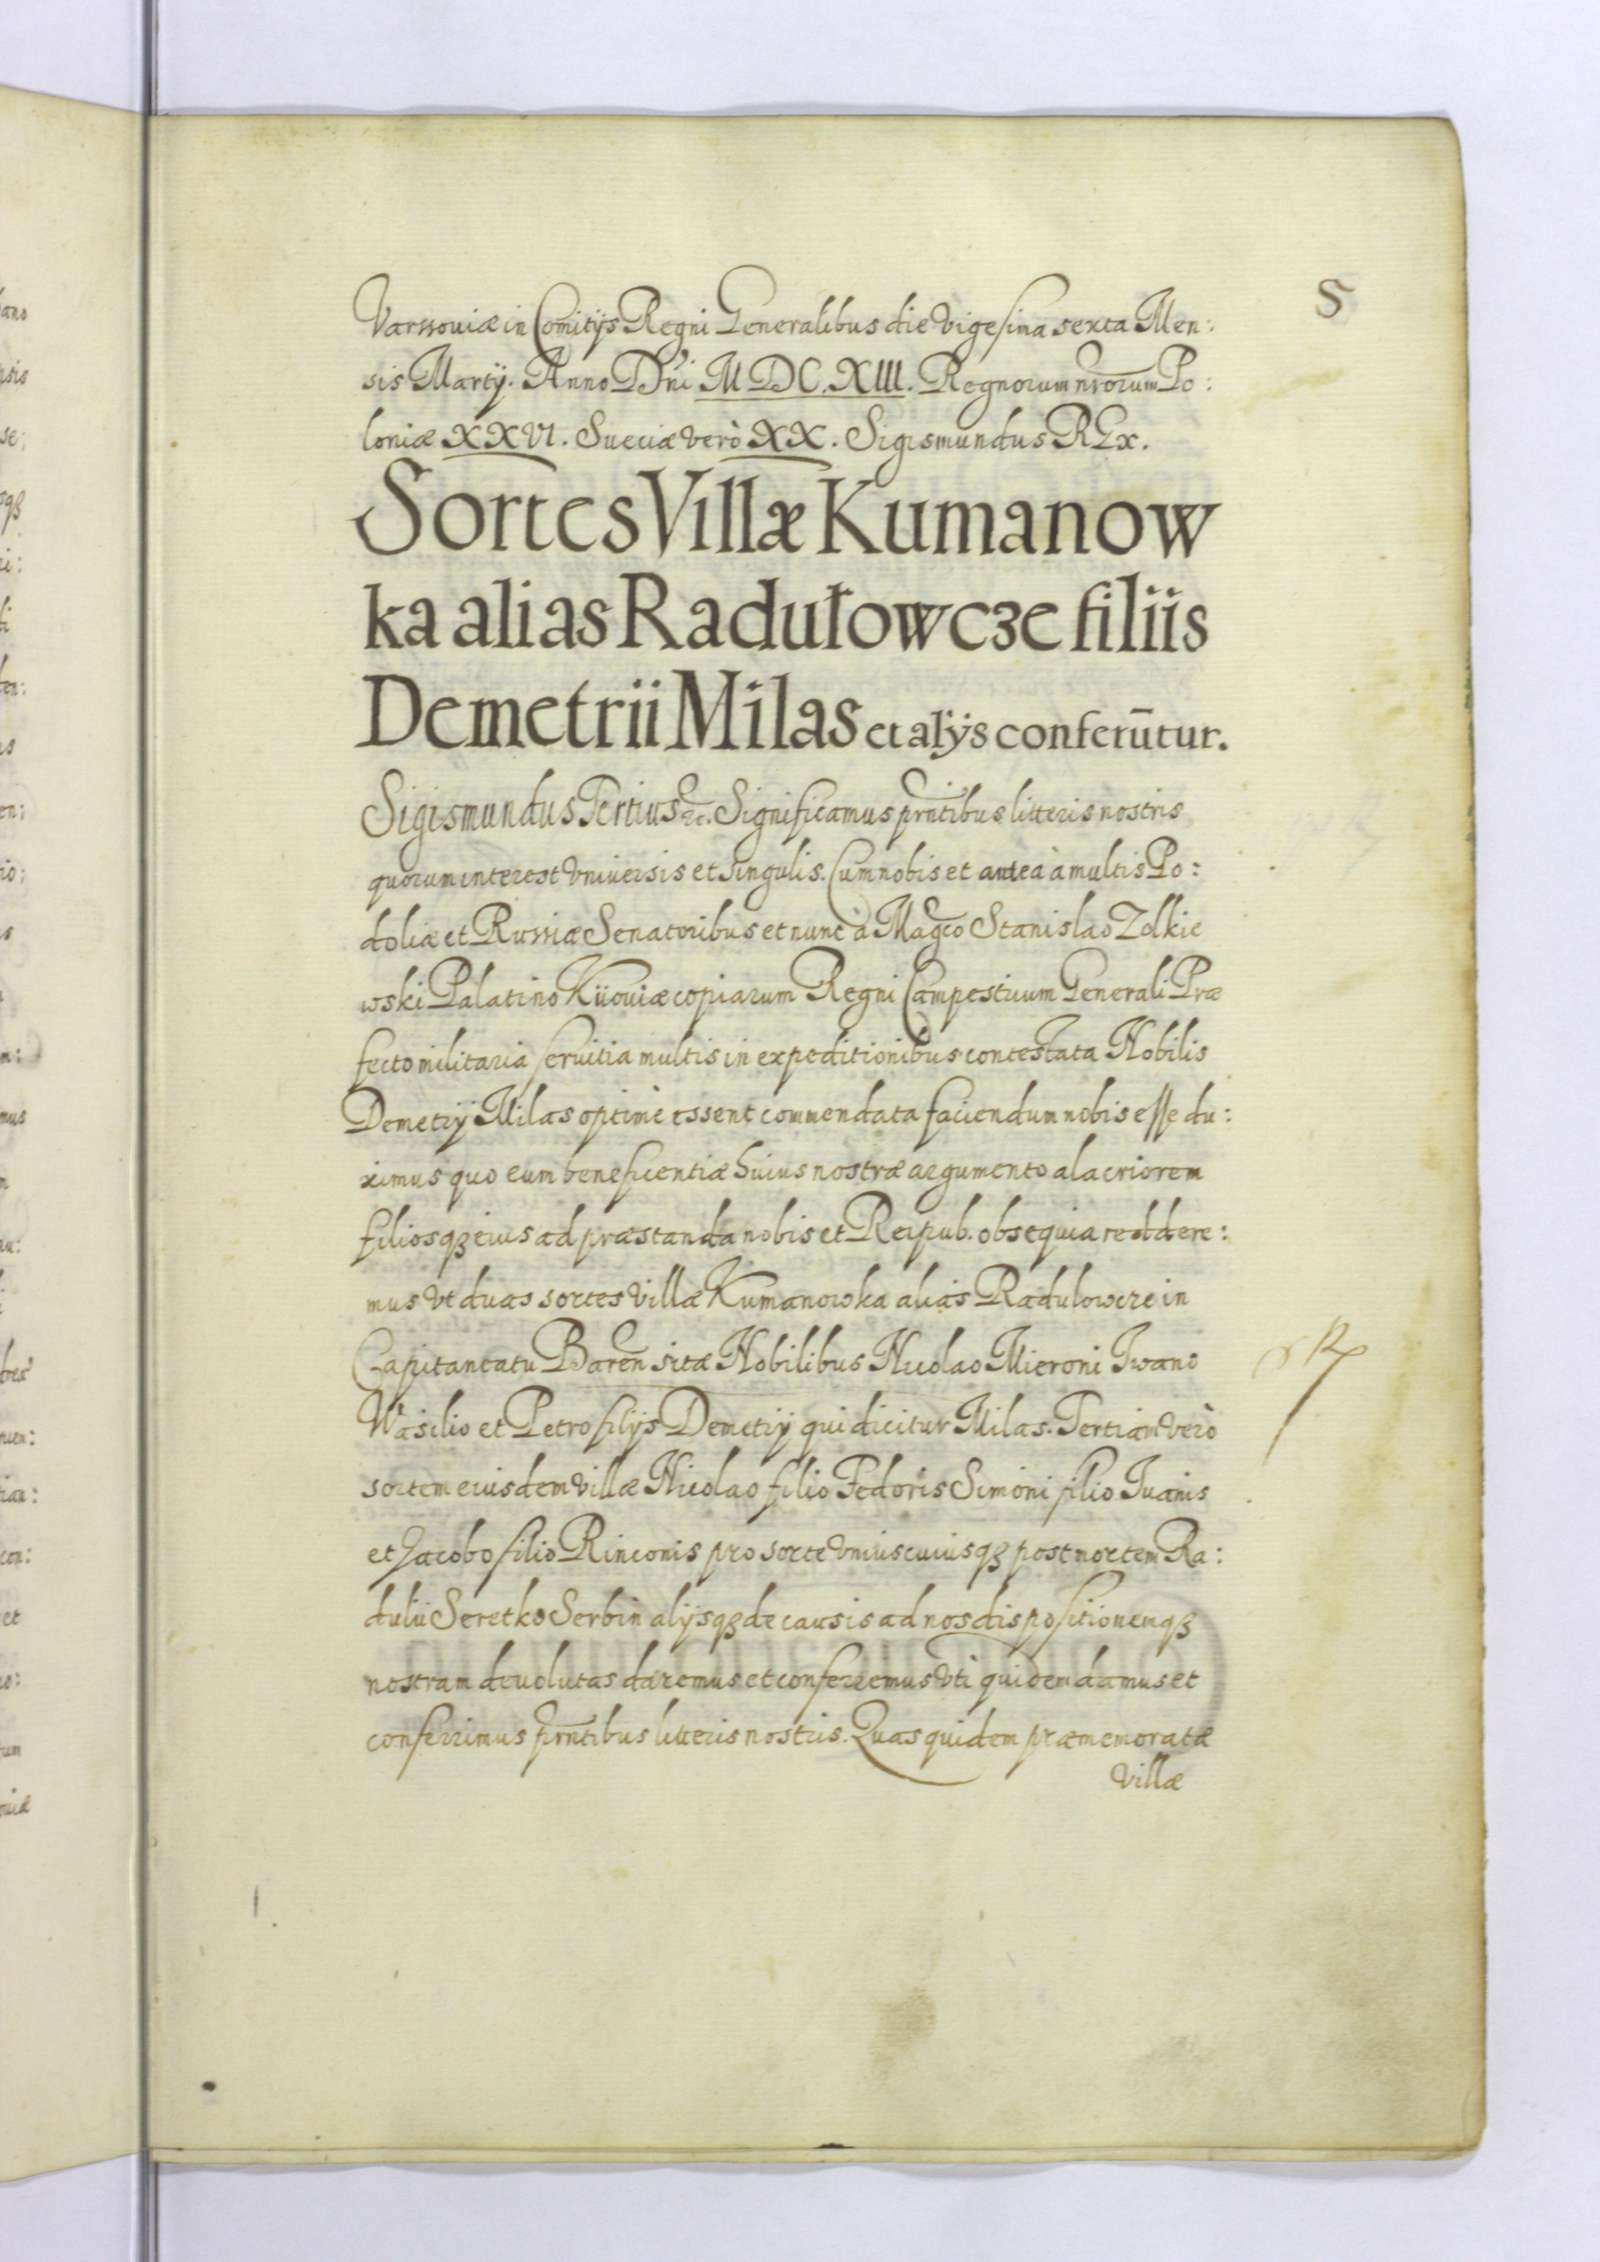 5
Varssouiæ in Comitijs Regni Generalibus die Vigesima sexta Men:
sis Martij. Anno Dñi M DC. XIII. Regnorum nrorum Po:
loniæ XXVI. Sueciæ verò XX. Sigismundus REx.
Sortes Villæ Kumanow
ka aliasRadułowcze filiis
Demetrii Milas et alijs conferūtur.
Sigismundus Tertius etc. Significamus prntibus litteris nostris
quorum interest Vniuersis et singulis. Cum nobis et antea à multis Po:
doliæ et Russiæ Senatoribus et nunc à Magco Stanislao Zolkie
wski Palatino Kiiouiæ copiarum Regni Campestrium Generali Præ
fecto militaria seruitia multis in expeditionibus contestata Nobilis
Demetrij Milas optimè essent commendata faciendum nobis esse du:
ximus quo eum beneficentiæ huius nostræ argumento alacriorem
filiosqꝫ eius ad præstanda nobis et Reipub. obsequia reddere:
mus Vt duas sortes Villæ Kumanowka alias Radulowcze in
Capitaneatu Baren sitæ Nobilibus Nicolao Mieroni Iwano
Wasilio et Petro filijs Demetrij qui dicitur Milas. Tertiam verò
sortem eiusdem Villæ Nicolao filio Fedoris Simoni filio Iuanis
et Jacobo filio Rinconis pro sorte Vniuscuiusqꝫ post mortem Ra:
dulii Seretko Serbin alijsqꝫ de causis ad nos dispositionemqꝫ
nostram deuolutas daremus et conferremus Vti quidem damus et
conferrimus prntibus litteris nostris. Quas quidem præmemoratæ
Villæ